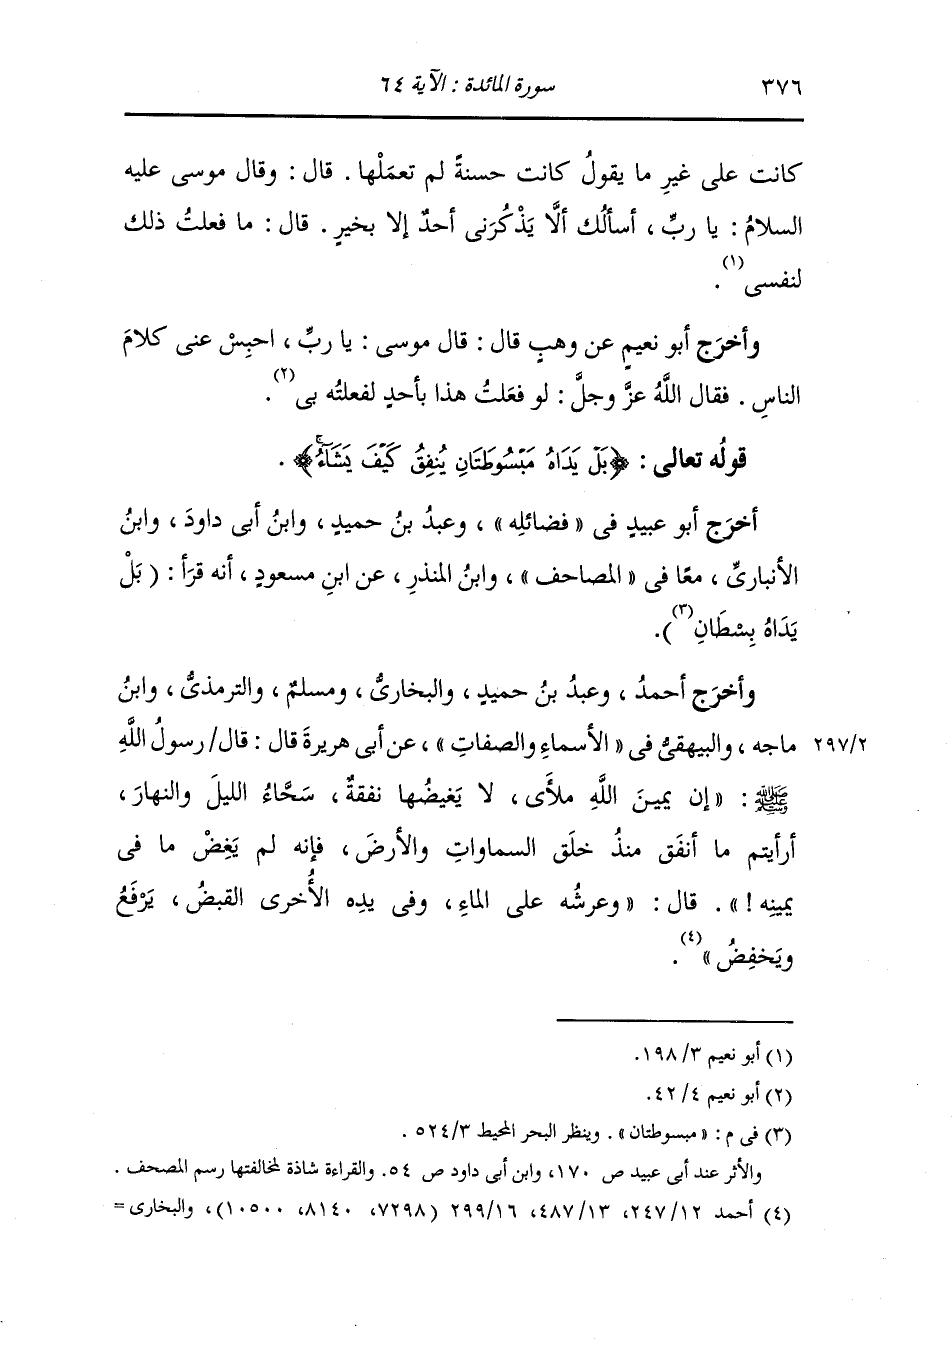 ٣٧٦ سورة المائدة : الآية ٦٤
كانت على غيرِ ما يقولُ كانت حسنةً لم تعمَلْها . قال : وقال موسى عليه
السلامُ : يا ربِّ ، أسألُك ألَّا يَذْكُرَنى أحدٌ إلا بخيرٍ . قال : ما فعلتُ ذلك
لنفسى(١) .
وأخرَج أبو نعيمٍ عن وهبٍ قال : قال موسى : يا ربِّ ، احبِسْ عنى كلامَ
الناسِ . فقال اللَّهُ عزَّ وجلَّ : لو فعَلتُ هذا بأحدٍ لفعلتُه بى(٢) .
قولُه تعالى : ﴿بَلْ يَدَاهُ مَبْسُوطَتَانِ يُنفِقُ كَيْفَ يَشَآءُۚ﴾ .
أخرَج أبو عبيدٍ فى « فضائلِه » ، وعبدُ بنُ حميدٍ ، وابنُ أبى داودَ ، وابنُ
الأنبارىِّ ، معًا فى « المصاحف » ، وابنُ المنذرِ ، عن ابنِ مسعودٍ ، أنه قرَأ : ( بَلْ
يَدَاهُ بِسْطَانِ(٣) ).
وأخرَج أحمدُ ، وعبدُ بنُ حميدٍ ، والبخارىُّ ، ومسلمٌ ، والترمذىُّ ، وابنُ
٢٩٧/٢ ماجه ، والبيهقىُّ فى « الأسماءِ والصفاتِ » ، عن أبى هريرةَ قال : قال/ رسولُ اللَّهِ
ﷺ : « إن يمينَ اللَّهِ ملأَى ، لا يَغيضُها نفقةٌ ، سَحَّاءُ الليلَ والنهارَ ،
أرأيتم ما أنفَق منذُ خلَق السماواتِ والأرضَ ، فإنه لم يَغِضْ ما فى
يمينِه ! » . قال : « وعرشُه على الماءِ ، وفى يدِه الأُخرى القبضُ ، يَرْفَعُ
ويَخفِضُ »(٤) .
(١) أبو نعيم ٣/ ١٩٨.
(٢) أبو نعيم ٤/ ٤٢.
(٣) فى م : « مبسوطتان » . وينظر البحر المحيط ٥٢٤/٣ .
والأثر عند أبى عبيد ص ١٧٠، وابن أبى داود ص ٥٤. والقراءة شاذة لمخالفتها رسم المصحف .
(٤) أحمد ٢٤٧/١٢، ٤٨٧/١٣، ٢٩٩/١٦ (٧٢٩٨، ٨١٤٠، ١٠٥٠٠)، والبخارى =